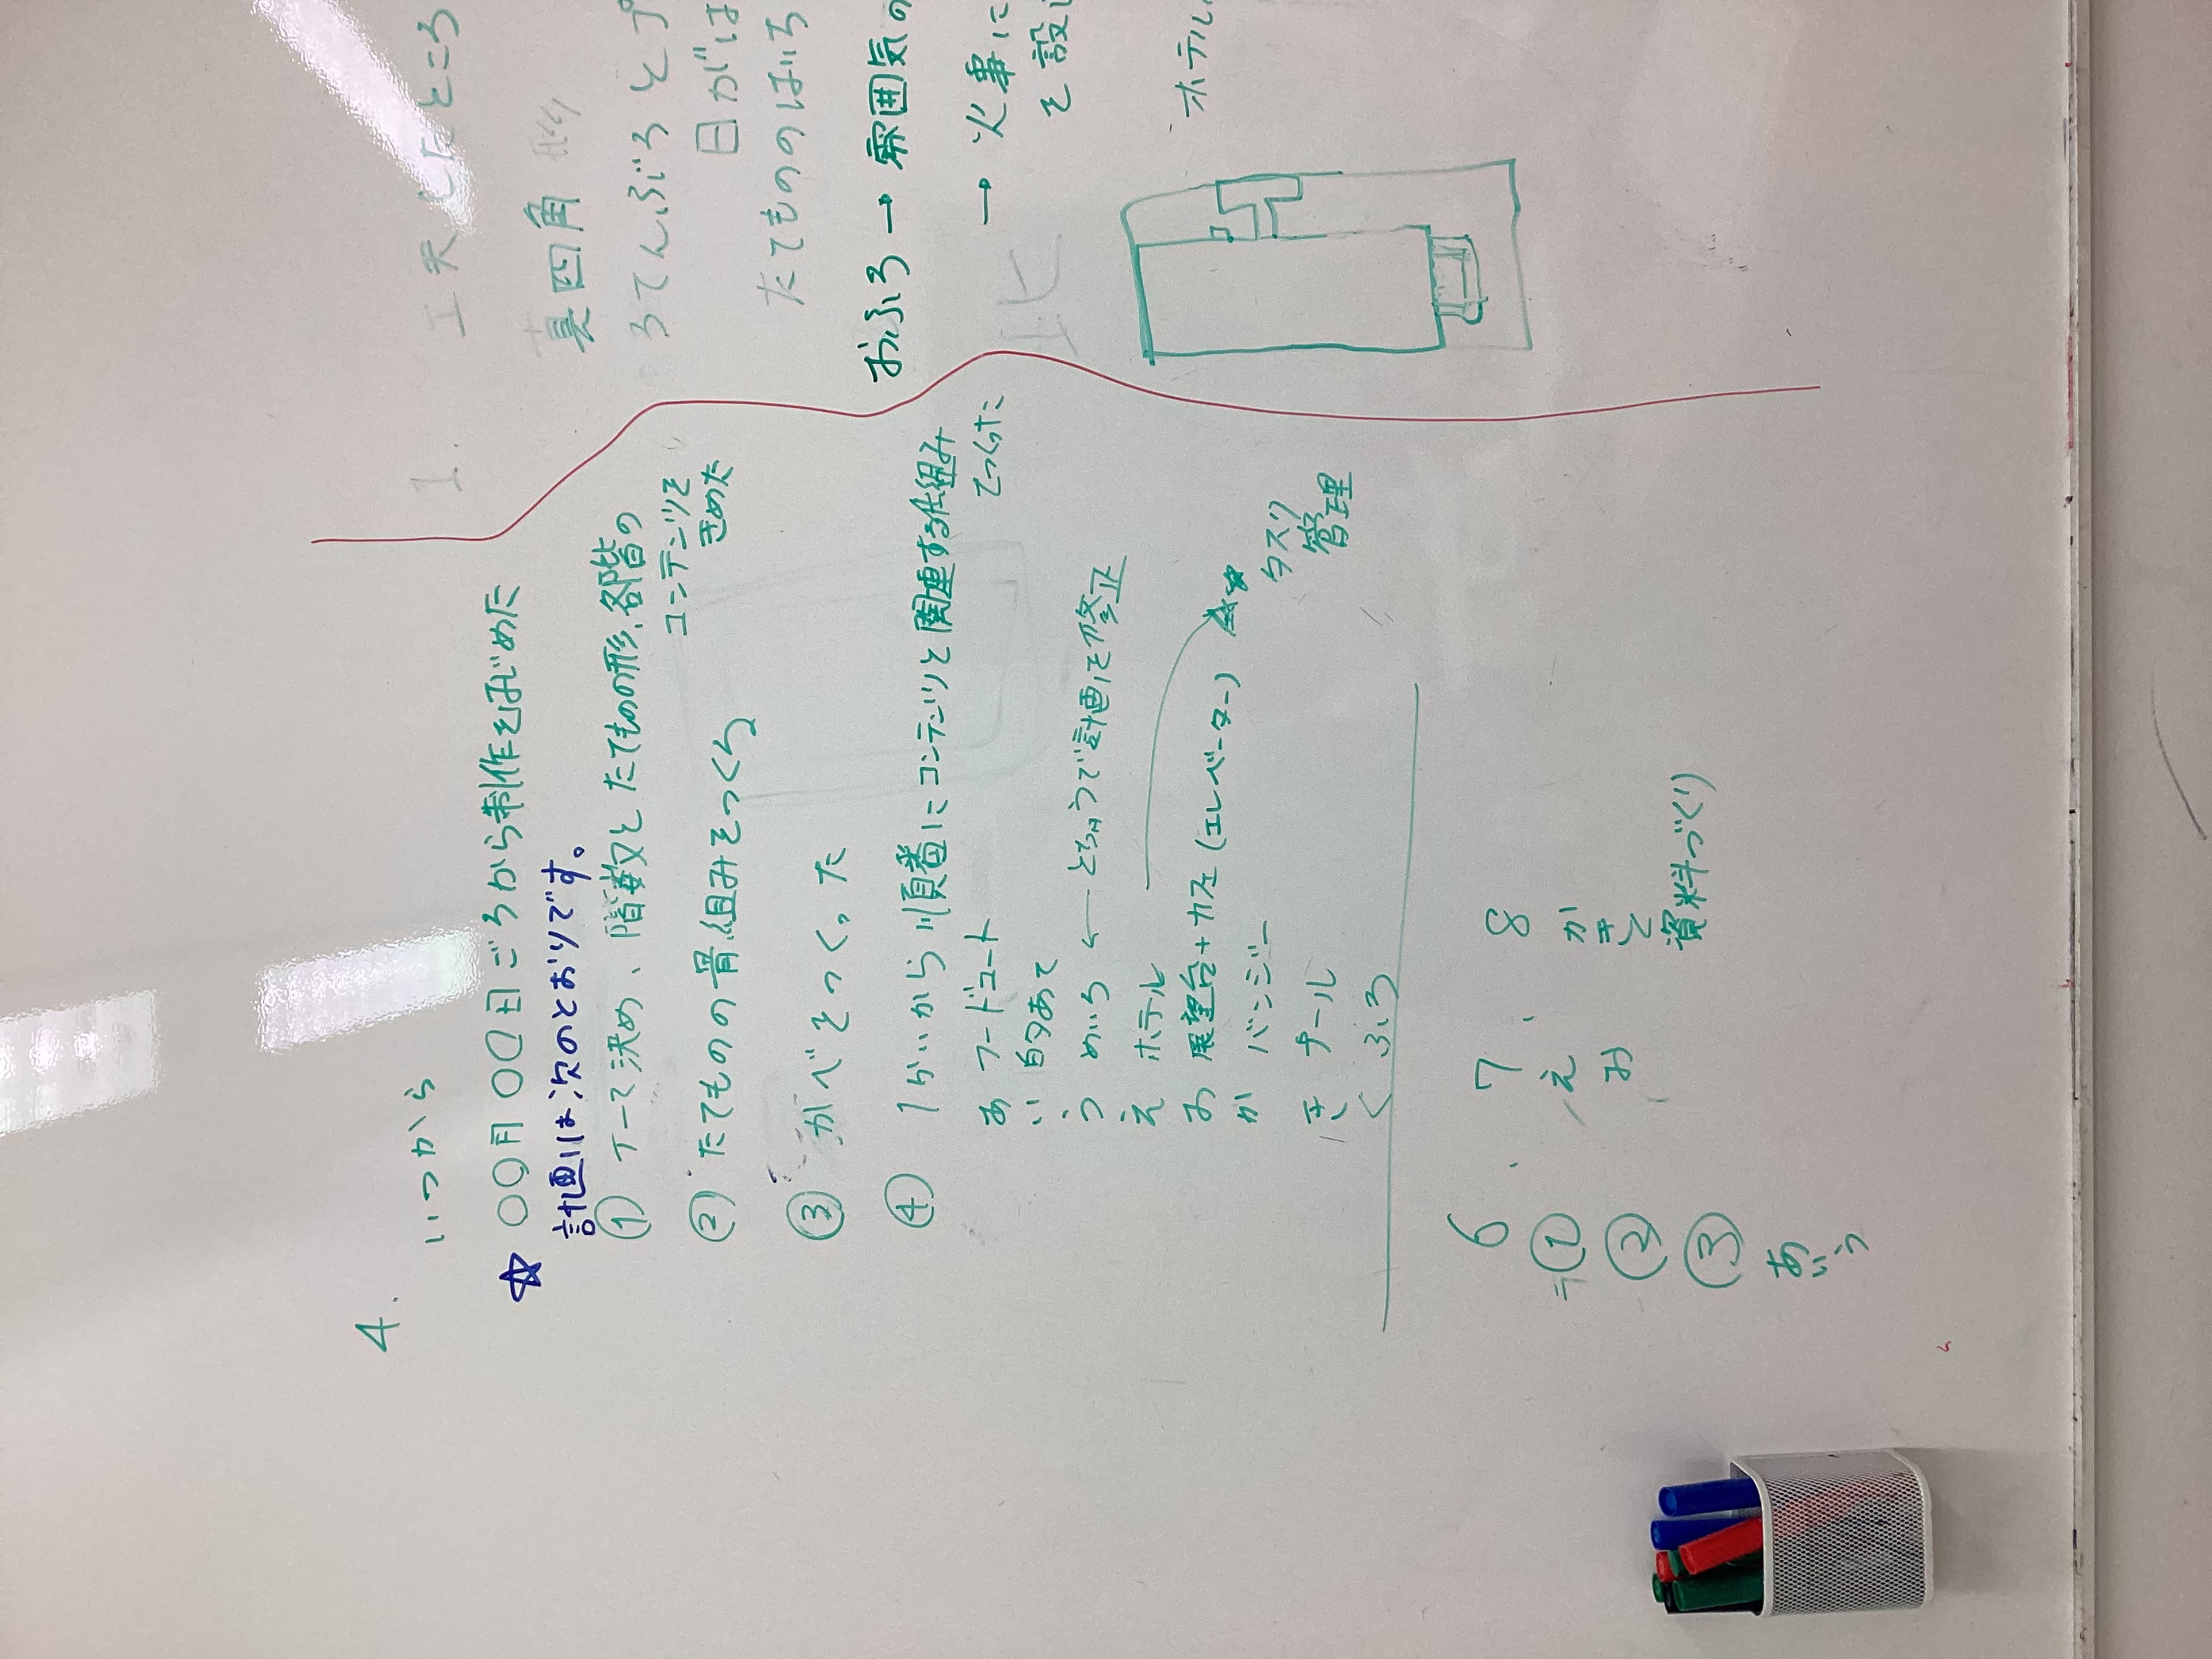 4.
いつから
☆ ○○月○○日ごろから制作をはじめた
計画は次のとおりです。
① テーマ決め、階数とたてものの形、各階の
コンテンツを
きめた
② たてものの骨組みをつくる
③ かべをつくった
④ 1かいから順番にコンテンツと関連する仕組み
をつくった
あ フードコート
い 的あて
う めいろ ← とちゅうで計画を修正
え ホテル
お 展望台+カフェ(エレベーター)
タスク
管理
か バンジー
き プール
く ふろ
6 . 7 . 8
① え か
② お き
く
③ 資料づくり
あ
い
う
1. 工夫したところ
真四角 形
ろてんぶろとプ
日がは
たてもののはいち
おふろ → 雰囲気の
→ 火事に
北
を設
ホテル